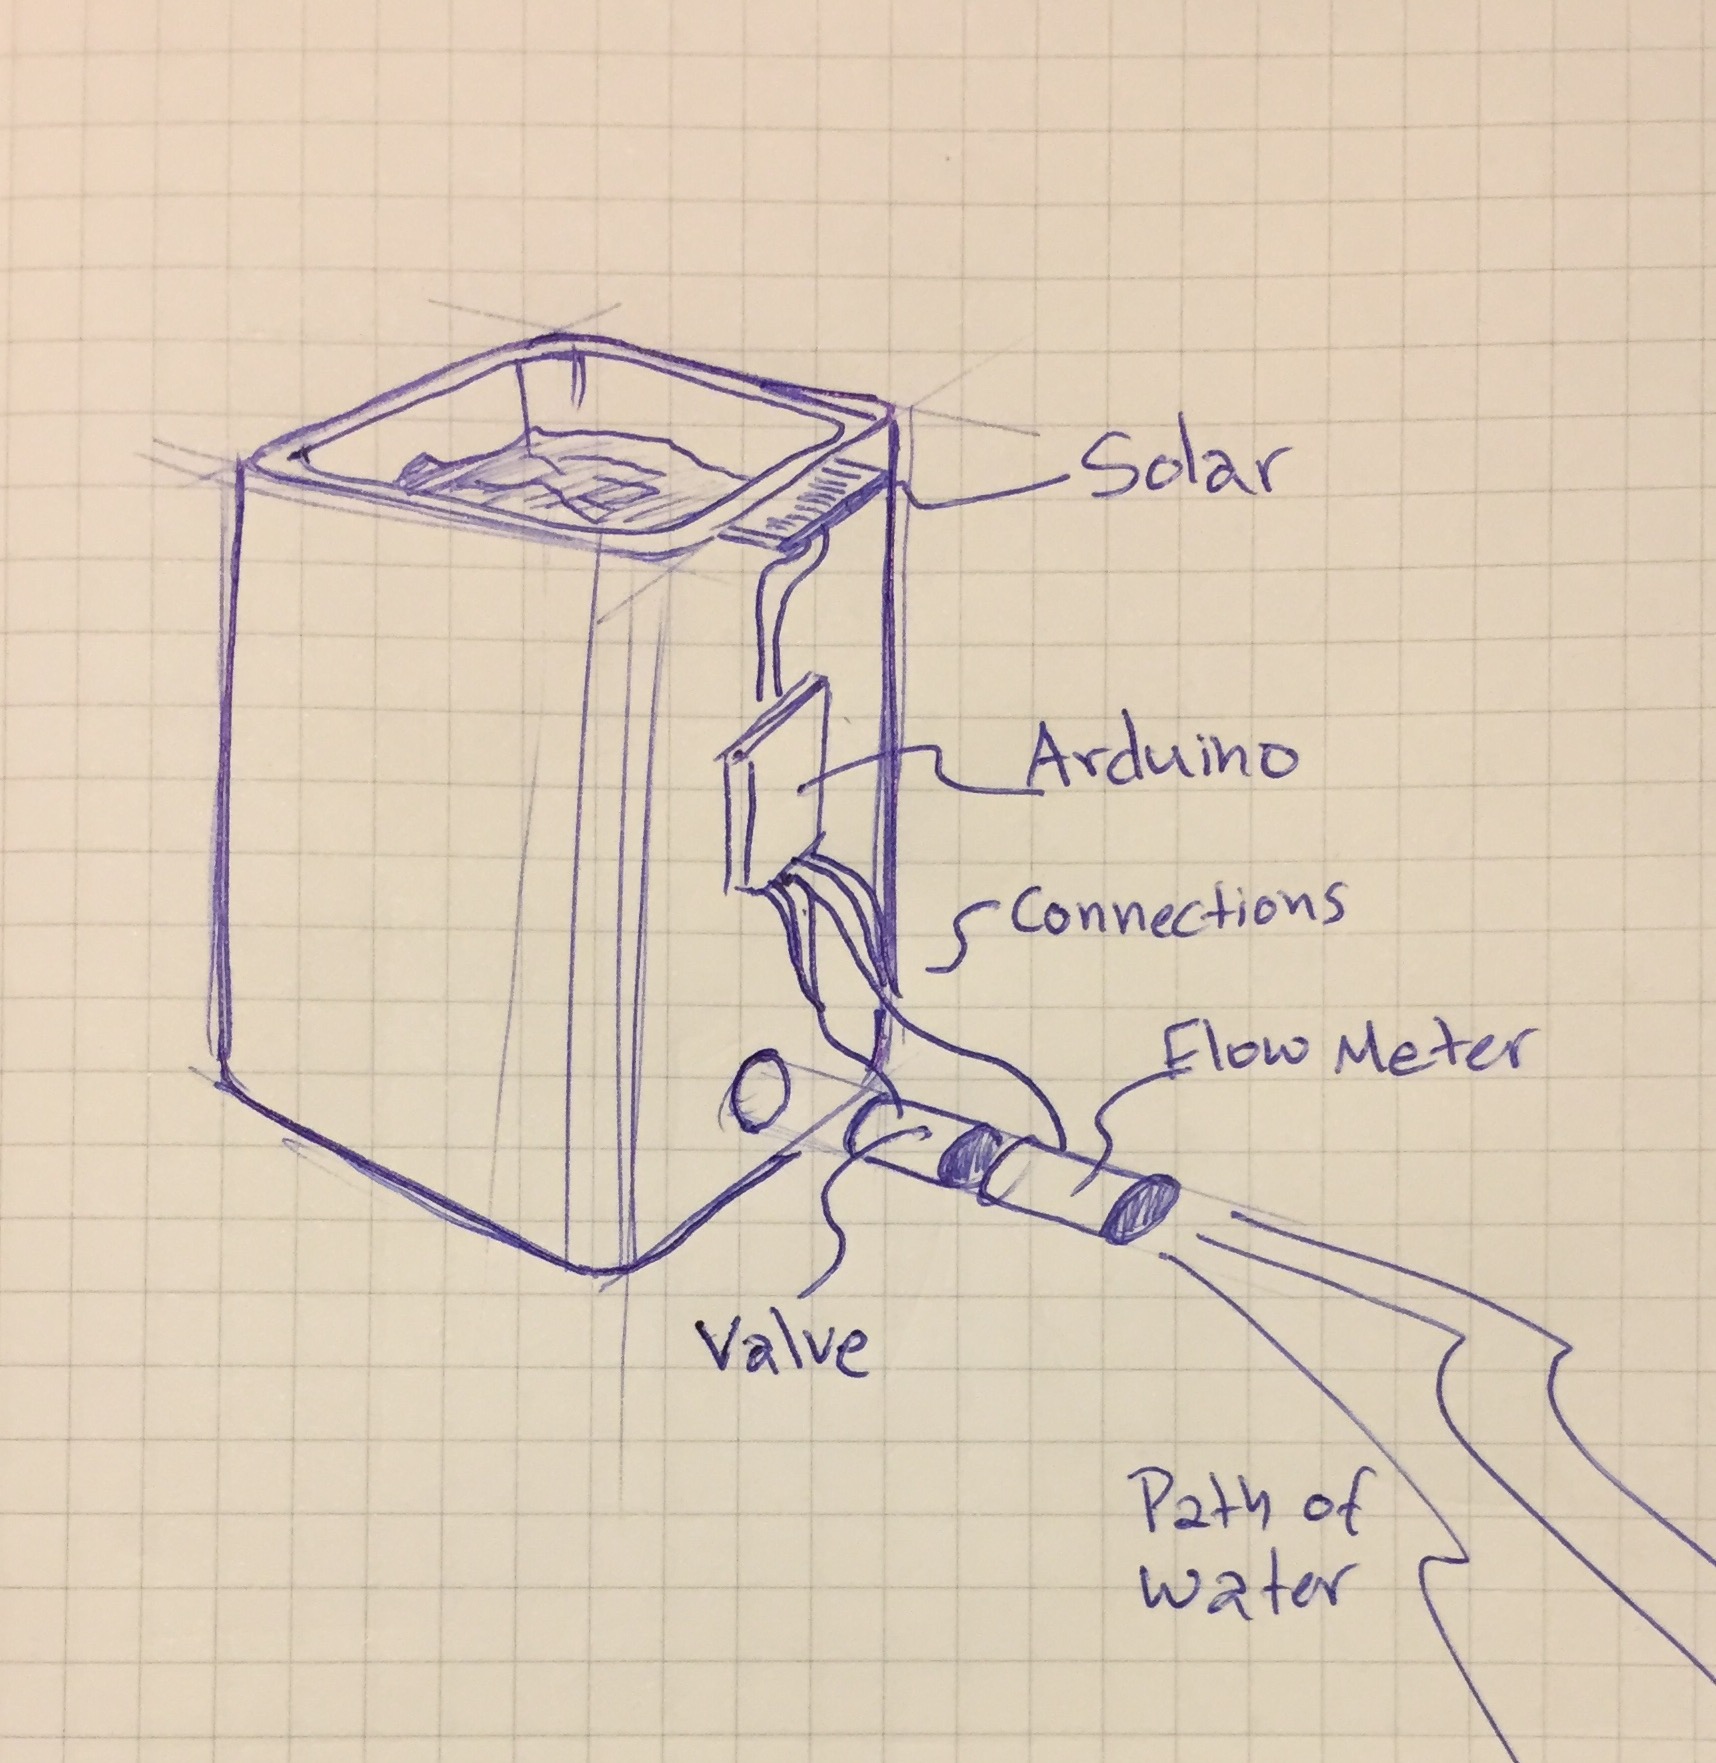 Solar
Arduino
Connections
Flow Meter
Valve
Path of
water